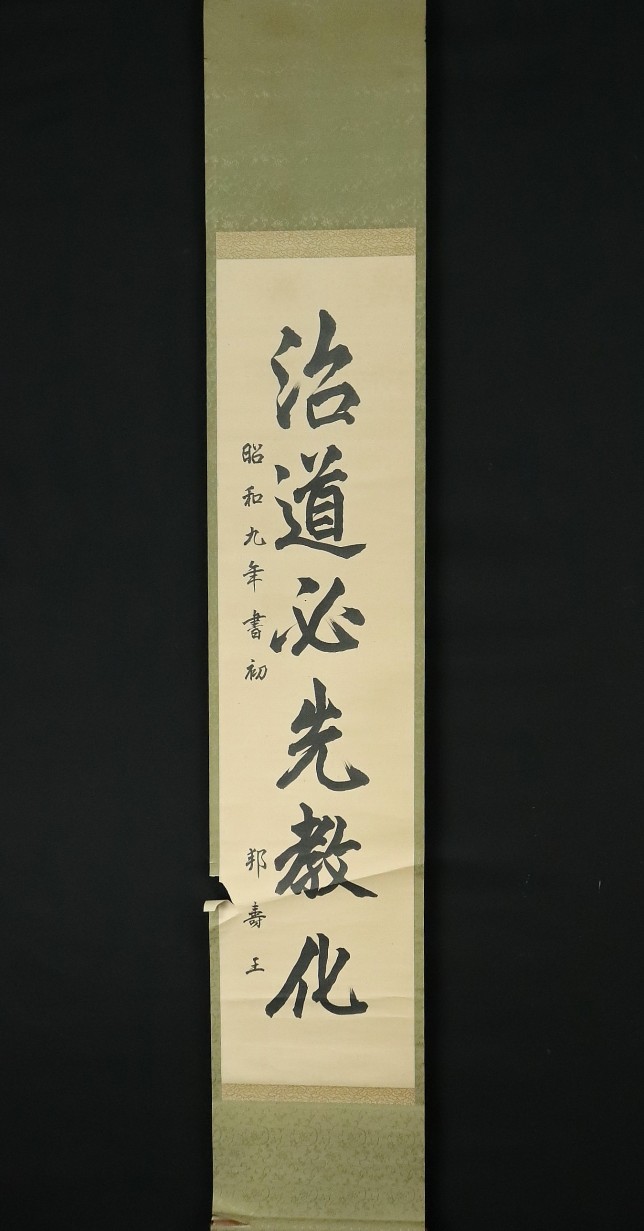 治道必先教化
昭和九年書初
邦壽王